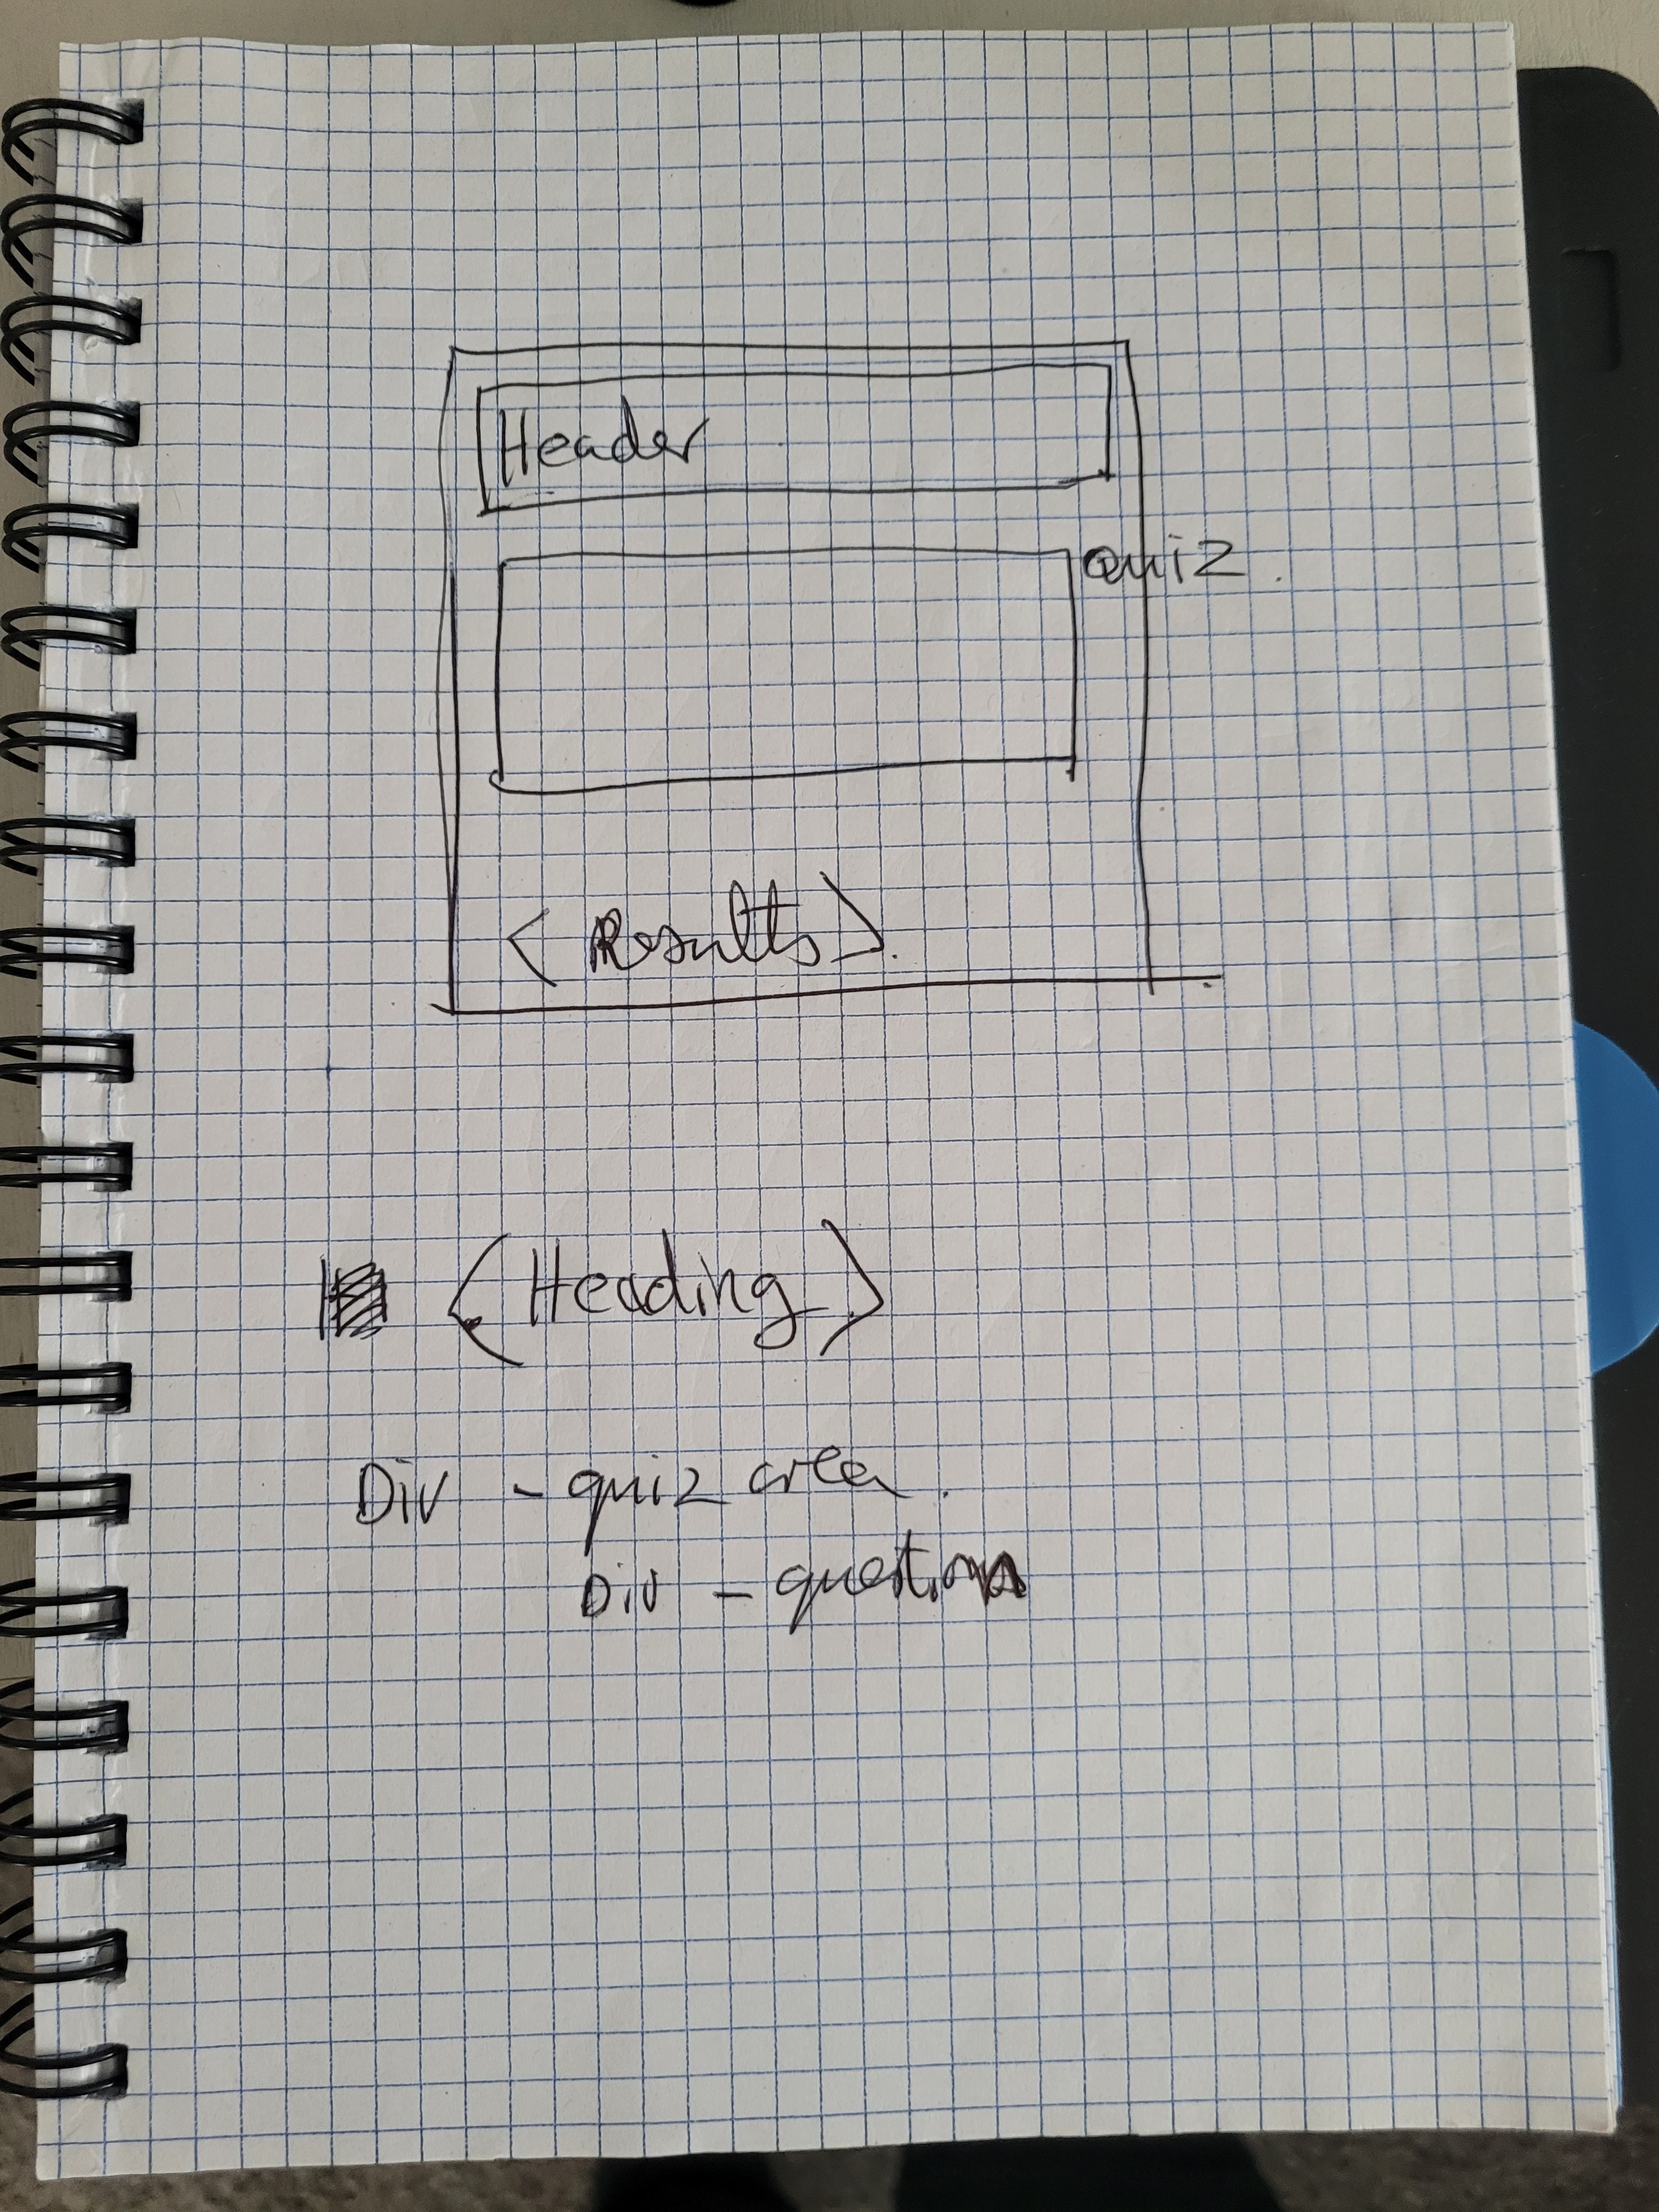 Header
Quiz
<Results>.
<Heading>
Div - quiz area.
Div - question